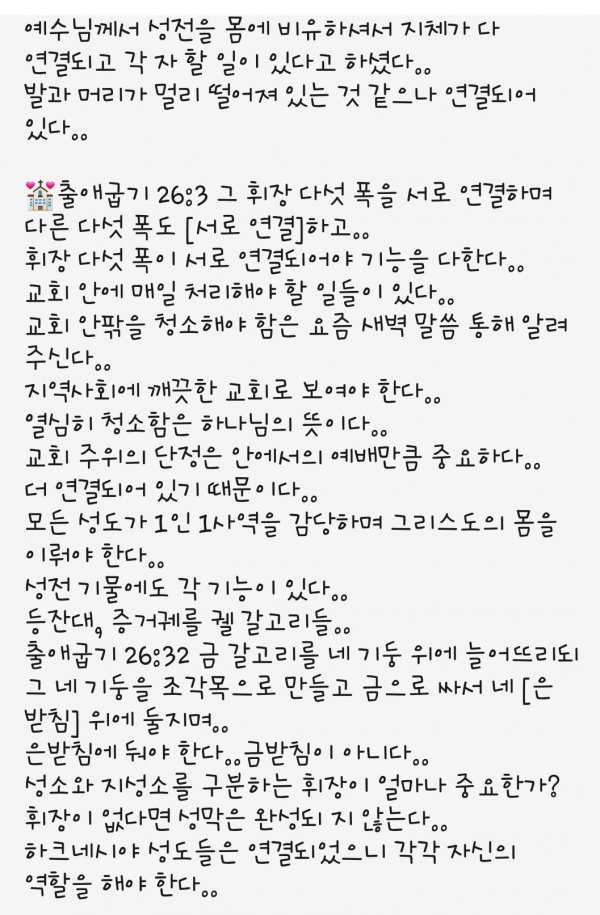 예수님께서 성전을 몸에 비유하셔서 지체가 다
연결되고 각 자 할 일이 있다고 하셨다..
발과 머리가 멀리 떨어져 있는 것 같으나 연결되어
있다..
💒출애굽기 26:3 그 휘장 다섯 폭을 서로 연결하며
다른 다섯 폭도 [서로 연결]하고..
휘장 다섯 폭이 서로 연결되어야 기능을 다한다..
교회 안에 매일 처리해야 할 일들이 있다..
교회 안팎을 청소해야 함은 요즘 새벽 말씀 통해 알려
주신다..
지역사회에 깨끗한 교회로 보여야 한다..
열심히 청소함은 하나님의 뜻이다..
교회 주위의 단정은 안에서의 예배만큼 중요하다..
더 연결되어 있기 때문이다..
모든 성도가 1인 1사역을 감당하며 그리스도의 몸을
이뤄야 한다..
성전 기물에도 각 기능이 있다..
등잔대, 증거궤를 궬 갈고리들..
출애굽기 26:32 금 갈고리를 네 기둥 위에 늘어뜨리되
그 네 기둥을 조각목으로 만들고 금으로 싸서 네 [은
받침] 위에 둘지며..
은받침에 둬야 한다..금받침이 아니다..
성소와 지성소를 구분하는 휘장이 얼마나 중요한가?
휘장이 없다면 성막은 완성되 지 않는다..
하크네시야 성도들은 연결되었으니 각각 자신의
역할을 해야 한다..